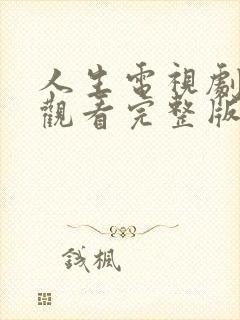 人生電視劇
觀看完整版
錢楓